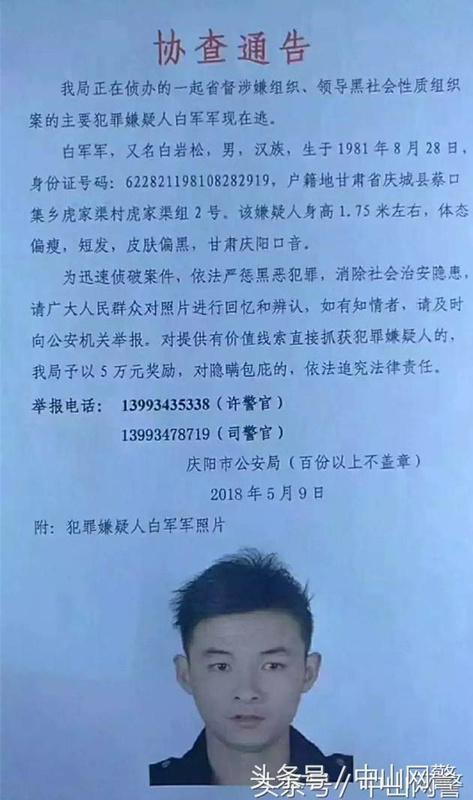 协查通告
我局正在侦办的一起省督涉嫌组织、领导黑社会性质组织
案的主要犯罪嫌疑人白军军现在逃。
白军军，又名白岩松，男，汉族，生于1981年8月28日，
身份证号码：622821198108282919，户籍地甘肃省庆城县蔡口
集乡虎家渠村虎家渠组2号。该嫌疑人身高1.75米左右，体态
偏瘦，短发，皮肤偏黑，甘肃庆阳口音。
为迅速侦破案件，依法严惩黑恶犯罪，消除社会治安隐患，
请广大人民群众对照片进行回忆和辨认，如有知情者，请及时
向公安机关举报。对提供有价值线索直接抓获犯罪嫌疑人的，
我局予以5万元奖励，对隐瞒包庇的，依法追究法律责任。
举报电话：13993435338（许警官）
13993478719（司警官）
庆阳市公安局（百份以上不盖章）
2018年5月9日
附：犯罪嫌疑人白军军照片
头条号／中山网警